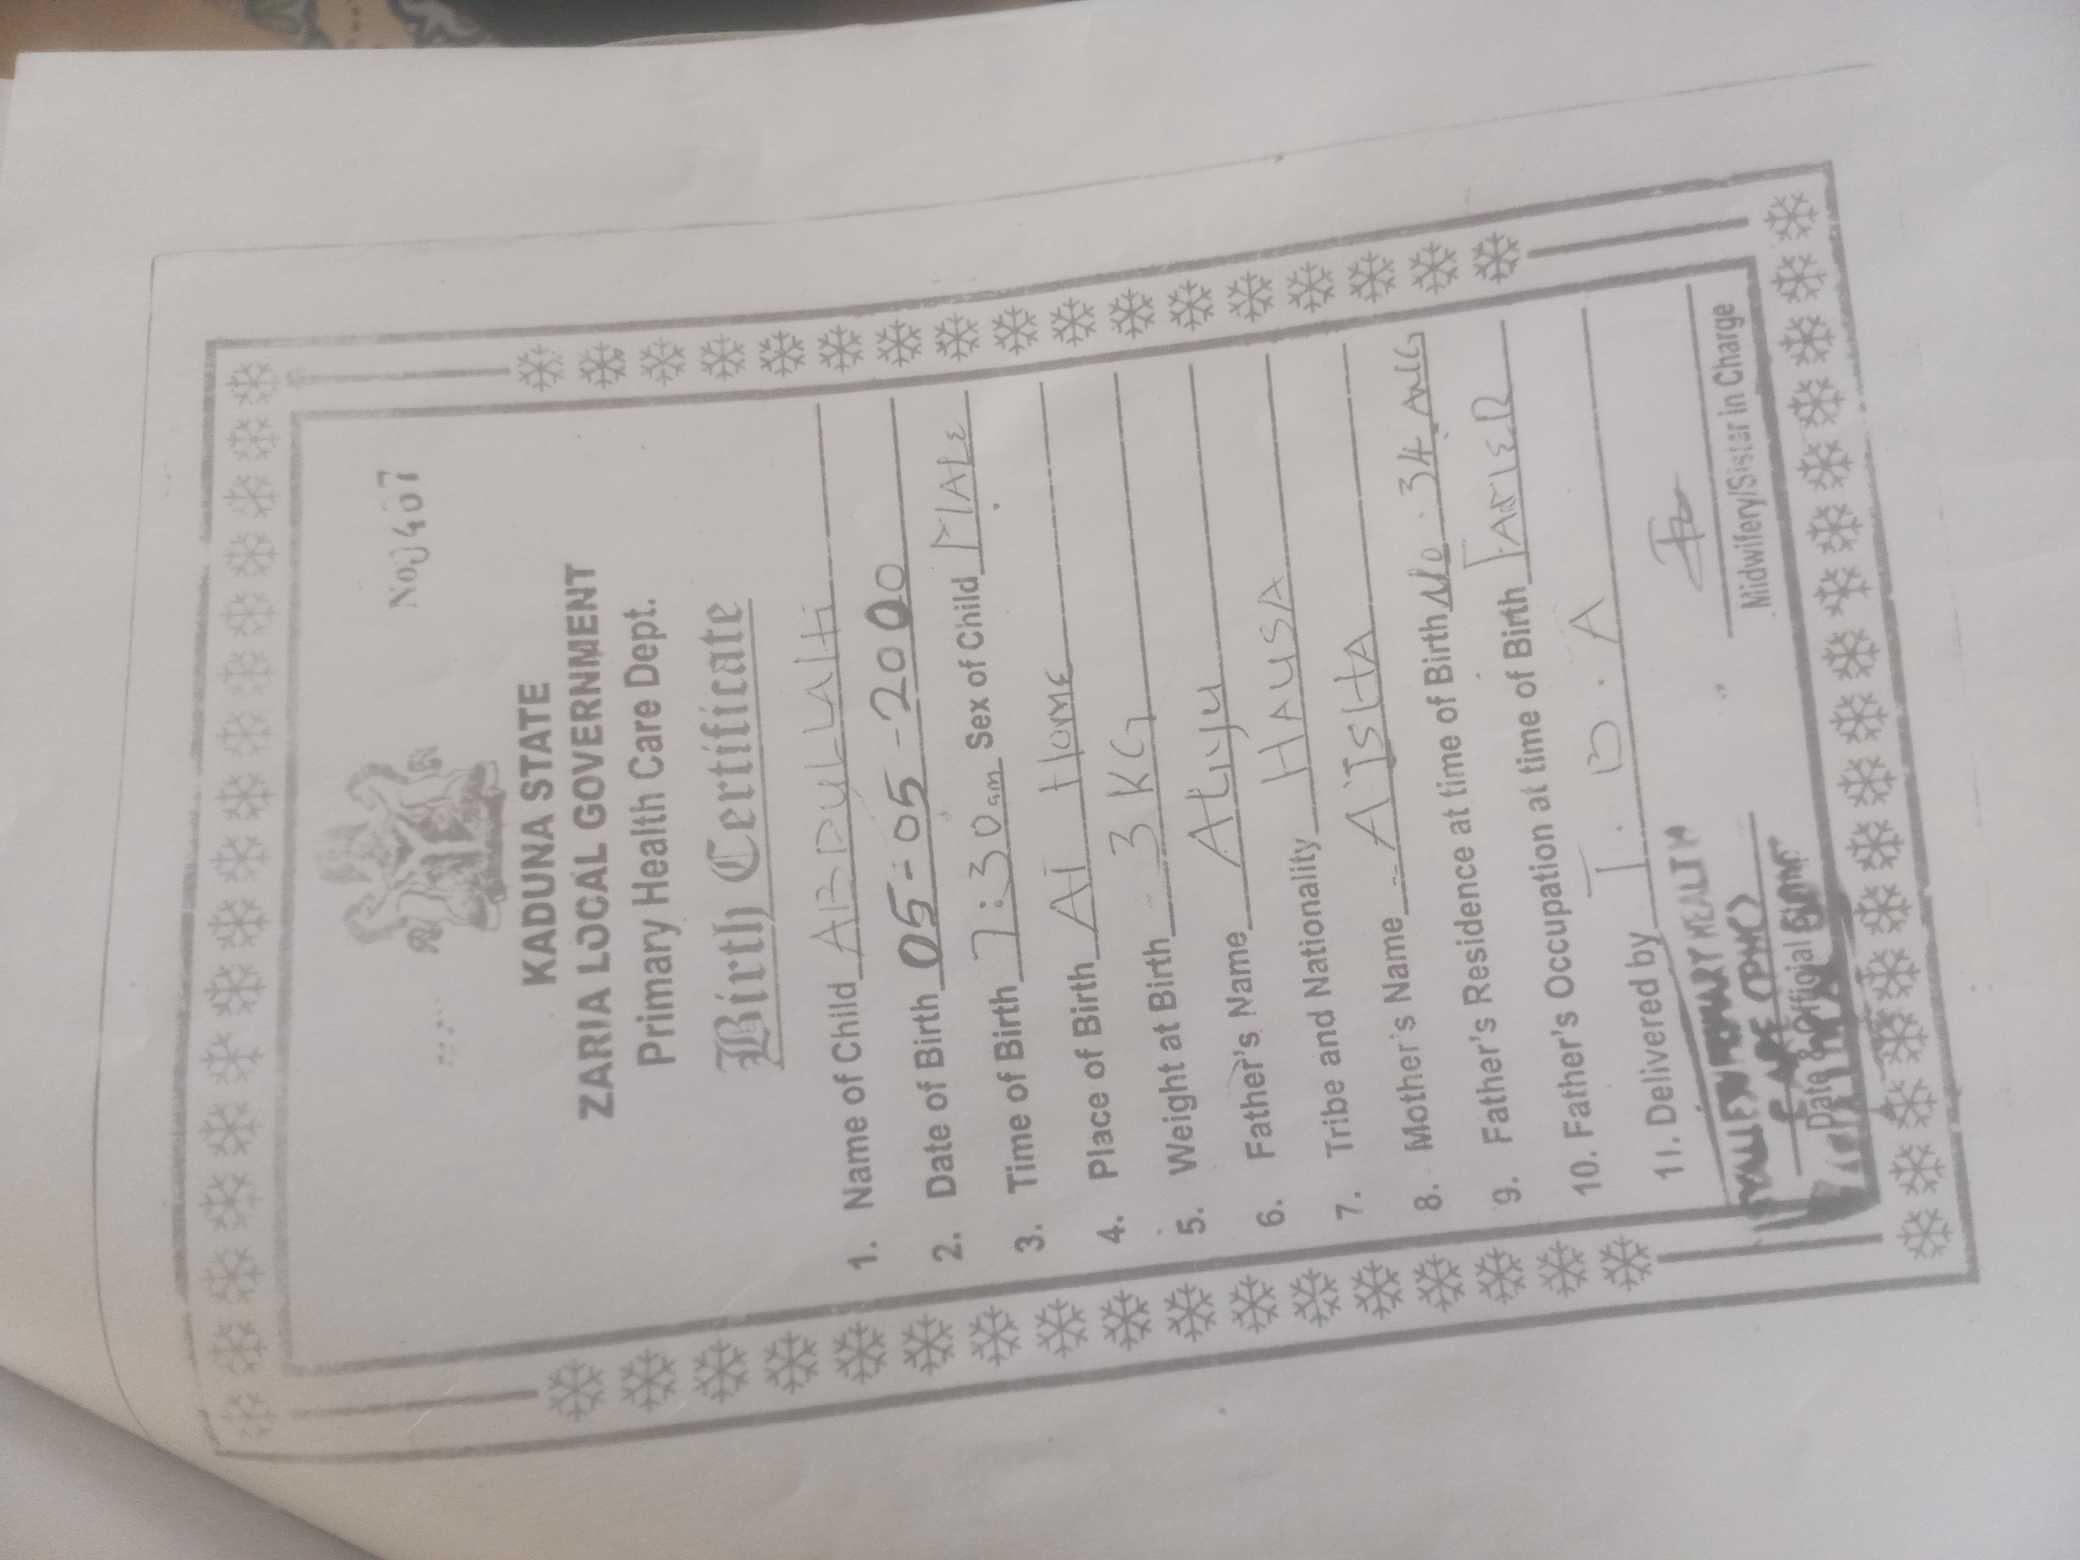 No 0407
KADUNA STATE
ZARIA LOCAL GOVERNMENT
Primary Health Care Dept.
Birth Certificate
1. Name of Child ABDULLAHi
2. Date of Birth 05-05-2000
3. Time of Birth 7:30am Sex of Child MALE
4. Place of Birth AT HOME
5. Weight at Birth 3KG
6. Father's Name ALiyu
7. Tribe and Nationality HAUSA
8. Mother's Name AISHA
9. Father's Residence at time of Birth No. 34 ANG
10. Father's Occupation at time of Birth
11. Delivered by T.B.A
PRIMARY HEALTH
CARE (PHC)
Date & Official Stamp
Midwifery/Sister in Charge